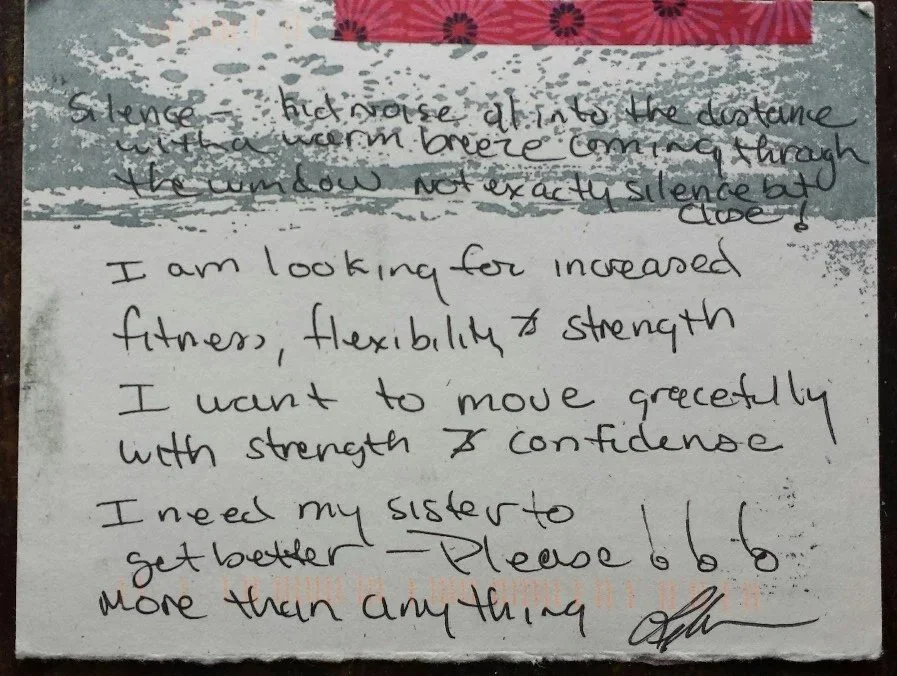 Silence – kid noise off into the distance
with a warm breeze coming through
the window not exacty silence but
close!
I am looking for increased
fitness, flexibility & strength
I want to move gracefully
with strength & confidense
I need my sister to
get better – Please !!!
more than anything